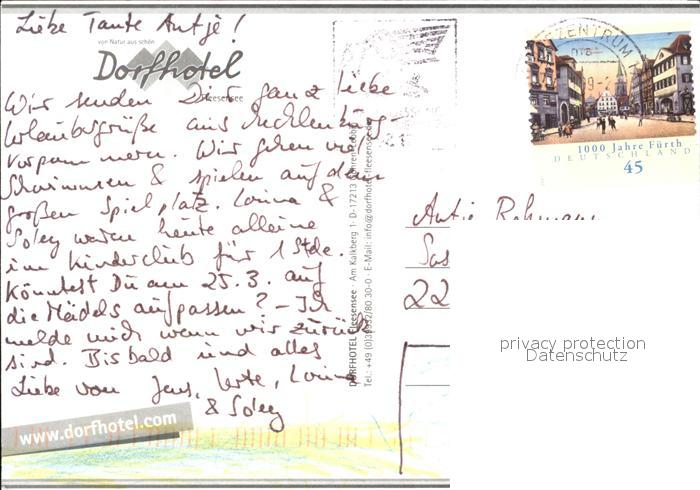 Liebe Tante Antje!
von Natur aus schön
Dorfhotel
Fleesensee
Wir senden Dir ganz liebe
Urlaubsgrüße aus Mecklenburg-
Vorpommern. Wir gehen viel
Schwimmen & spielen auf dem
großen Spielplatz. Lorina &
Soley waren heute alleine
im Kinderclub für 1 Stde.
Könntest Du am 25.3. auf
die Mädels aufpassen? – Ich
melde mich wenn wir zurück
sind. Bis bald und alles
Liebe von Jens, Lorina
& Soley
www.dorfhotel.com
DORFHOTEL Fleesensee · Am Kalkberg 1 · D-17213
Tel.: +49 (0)39932/80 30-0 · E-Mail: info@dorfhotel-fleesensee.de
BRIEFZENTRUM
1000 Jahre Fürth
DEUTSCHLAND
45
Antje
22
privacy protection
Datenschutz